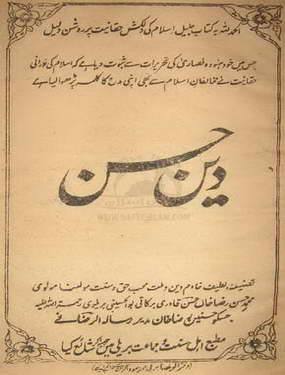 الحمد للہ یہ کتاب جلیل اسلام کی دلکش حقانیت پر روشن دلیل
جس میں خود ہنود و نصاریٰ کی تحریرات سے ثبوت دیا ہے کہ اسلام کی نورانی
حقانیت نے مخالفان اسلام سے بھی اپنی مدح کا کلمہ پڑھوا لیا ہے
دین حسن
WWW.NAFSEISLAM.COM
تصنیف لطیف خادم دین و ملت محب حق و سنت مولٰنا مولوی
محمد حسن رضا خاں حسن قادری برکاتی بوالحسینی بریلوی رحمۃ اللہ علیہ
جسکو حسنین رضا خاں مدیر رسالہ الرضا نے
مطبع اہل سنت و جماعت بریلی میں شائع کیا